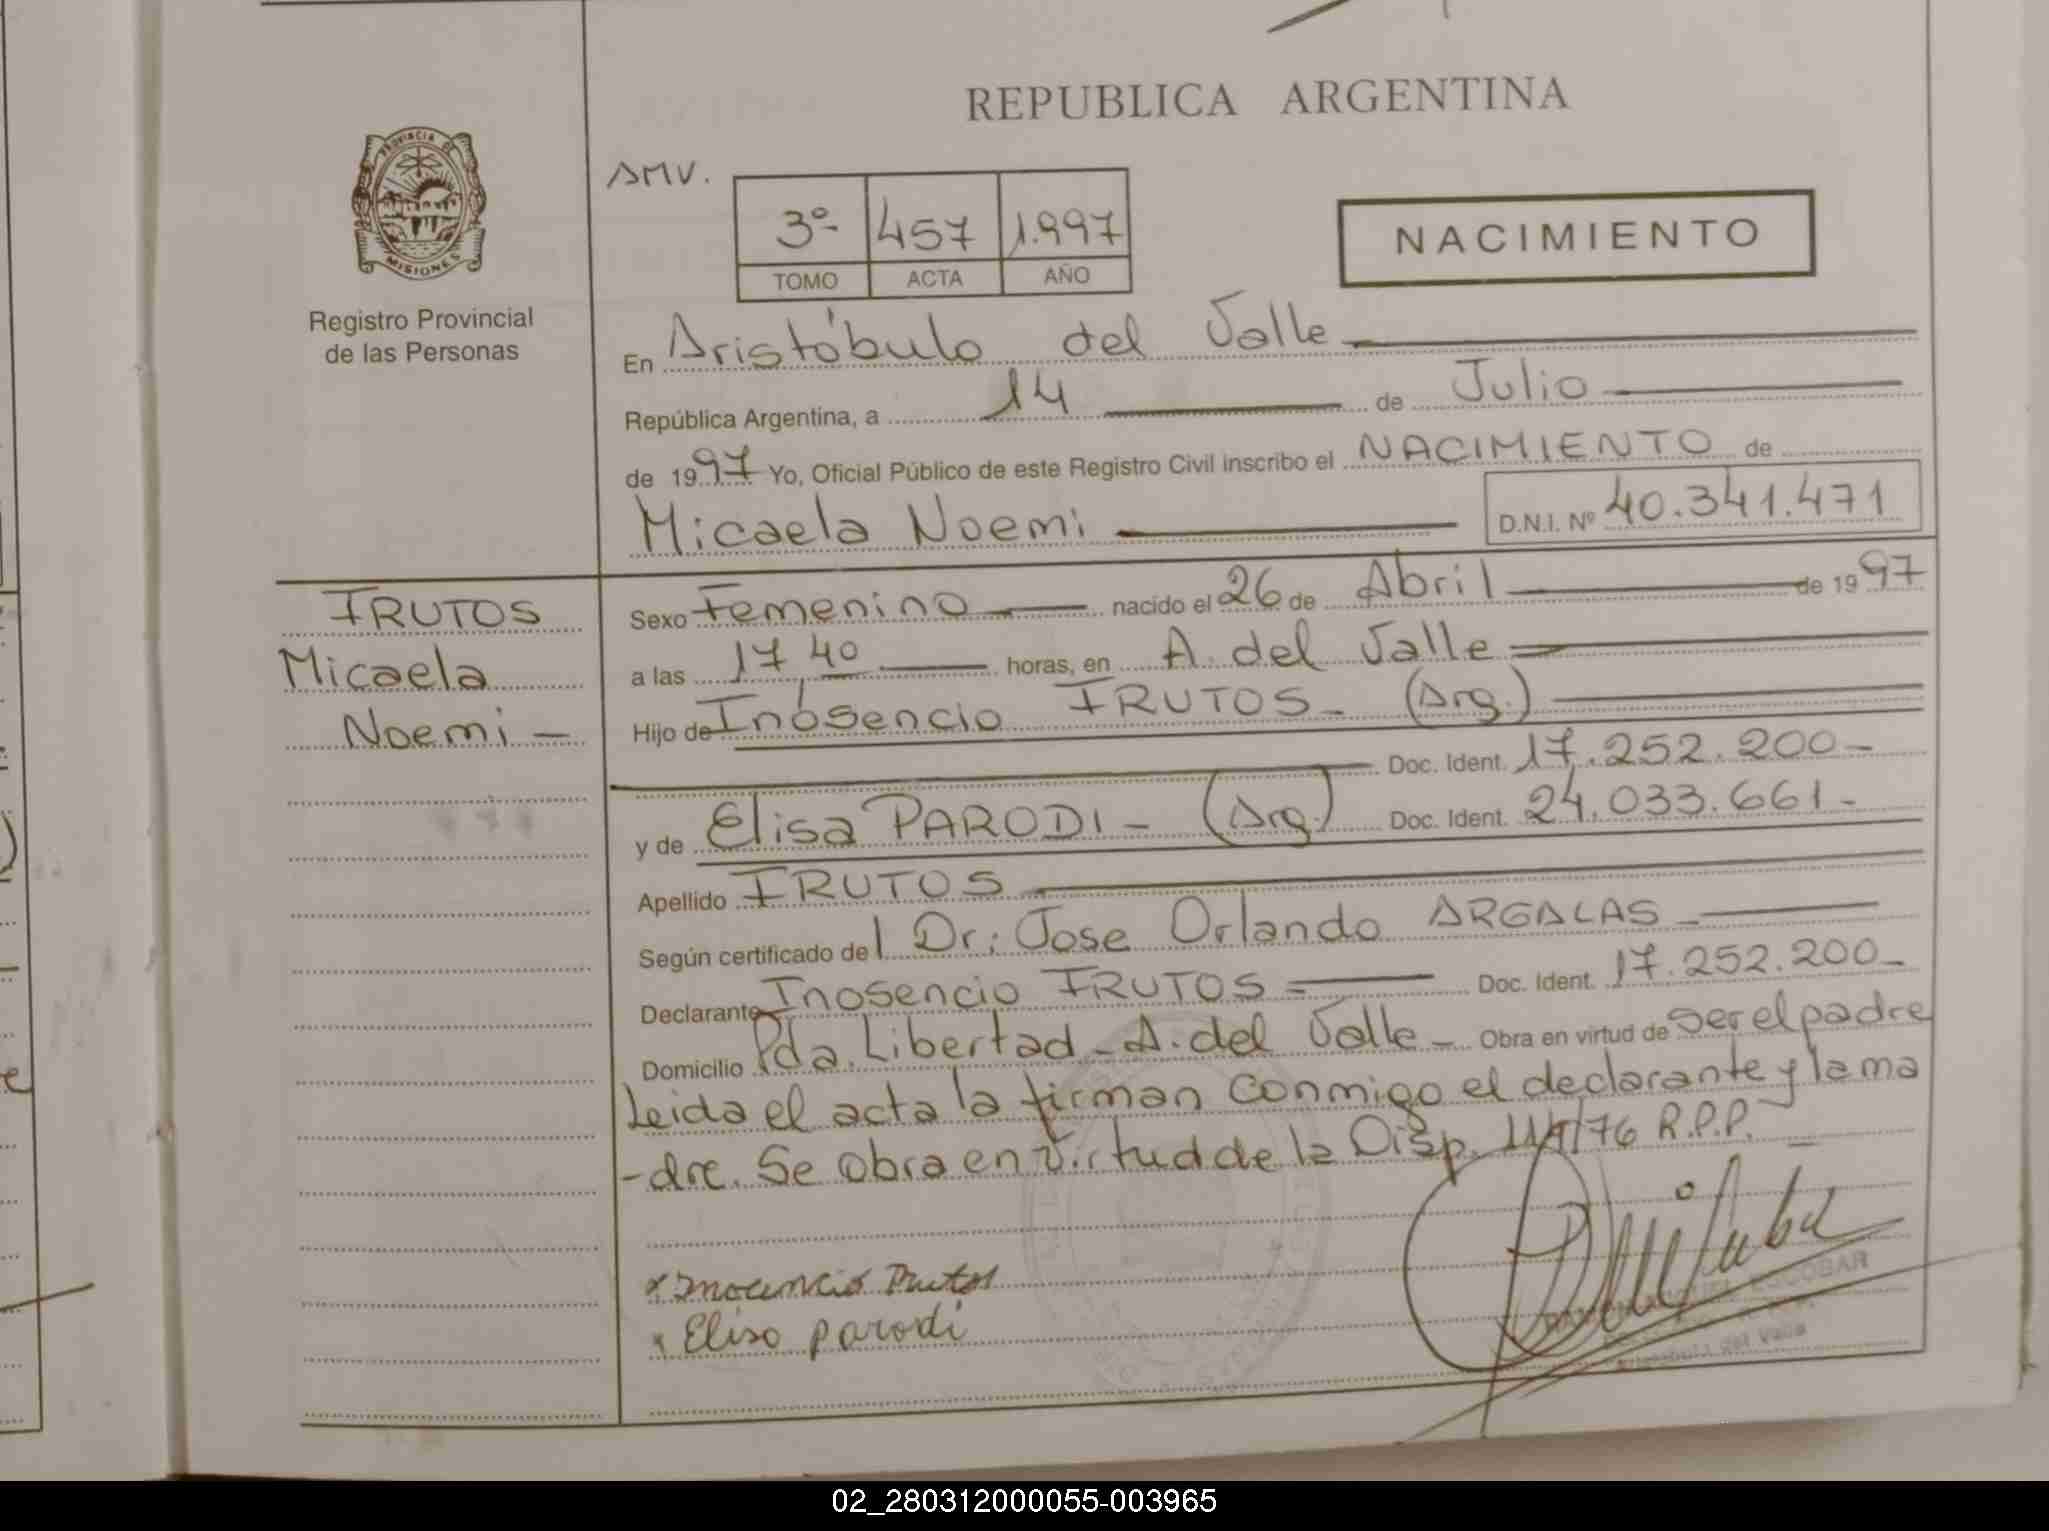 REPUBLICA ARGENTINA
PROVINCIA DE
MISIONES
Registro Provincial
de las Personas
AMV.
3º 457 1.997
TOMO ACTA AÑO
NACIMIENTO
En Aristóbulo del Valle
República Argentina, a 14 de Julio
de 1997 Yo, Oficial Público de este Registro Civil inscribo el NACIMIENTO de
Micaela Noemi D.N.I. Nº 40.341.471
FRUTOS
Micaela
Noemi -
Sexo Femenino nacido el 26 de Abril de 1997
a las 17,40 horas, en A. del Valle
Hijo de Inosencio FRUTOS - (Arg.)
Doc. Ident. 17.252.200-
y de Elisa PARODI - (Arg.) Doc. Ident. 24.033.661-
Apellido FRUTOS
Según certificado del Dr: Jose Orlando ARGALAS -
Declarante Inosencio FRUTOS = Doc. Ident. 17.252.200-
Domicilio Pda. Libertad - A. del Valle - Obra en virtud de ser el padre
Leida el acta la firman conmigo el declarante y la ma
-dre. Se obra en virtud de la Disp. /76 R.P.P. -
x Inocencio Frutos
x Elisa parodi
ESCOBAR
del Valle
02_280312000055-003965